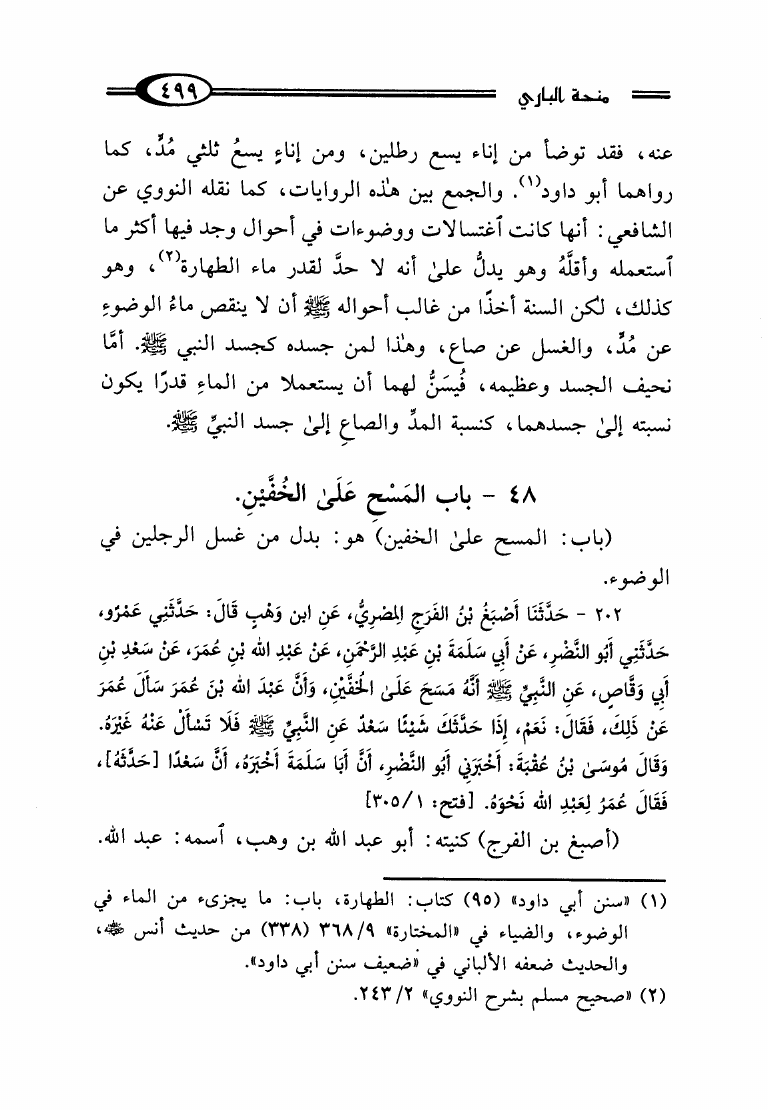 منحة الباري
٤٩٩
عنه، فقد توضأ من إناء يسع رطلين، ومن إناءٍ يسعُ ثلثي مُدٍّ، كما
رواهما أبو داود(١). والجمع بين هذه الروايات، كما نقله النووي عن
الشافعي: أنها كانت ٱغتسالات ووضوءات في أحوال وجد فيها أكثر ما
ٱستعمله وأقلَّهُ وهو يدلُّ علىٰ أنه لا حدَّ لقدر ماء الطهارة(٢)، وهو
كذلك، لكن السنة أخذًا من غالب أحواله ﷺ أن لا ينقص ماءُ الوضوءِ
عن مُدٍّ، والغسل عن صاع، وهذا لمن جسده كجسد النبي ﷺ. أمَّا
نحيف الجسد وعظيمه، فُيسَنُّ لهما أن يستعملا من الماءِ قدرًا يكون
نسبته إلىٰ جسدهما، كنسبة المدِّ والصاعِ إلىٰ جسد النبيِّ ﷺ.
٤٨ - باب المَسْحِ عَلَىٰ الخُفَّيْنِ.
(باب: المسح علىٰ الخفين) هو: بدل من غسل الرجلين في
الوضوء.
٢٠٢ - حَدَّثَنَا أَصْبَغُ بْنُ الفَرَجِ المِصْرِيُّ، عَنِ ابن وَهْبٍ قَالَ: حَدَّثَنِي عَمْرٌو،
حَدَّثَنِي أَبُو النَّضْرِ، عَنْ أَبِي سَلَمَةَ بْنِ عَبْدِ الرَّحْمَنِ، عَنْ عَبْدِ الله بْنِ عُمَرَ، عَنْ سَعْدِ بْنِ
أَبِي وَقَّاصٍ، عَنِ النَّبِيِّ ﷺ أَنَّهُ مَسَحَ عَلَىٰ الخُفَّيْنِ، وَأَنَّ عَبْدَ الله بْنَ عُمَرَ سَأَلَ عُمَرَ
عَنْ ذَلِكَ، فَقَالَ: نَعَمْ، إِذَا حَدَّثَكَ شَيْئًا سَعْدٌ عَنِ النَّبِيِّ ﷺ فَلَا تَسْأَلْ عَنْهُ غَيْرَهُ.
وَقَالَ مُوسَىٰ بْنُ عُقْبَةَ: أَخْبَرَنِي أَبُو النَّضْرِ، أَنَّ أَبَا سَلَمَةَ أَخْبَرَهُ، أَنَّ سَعْدًا [حَدَّثَهُ]،
فَقَالَ عُمَرُ لِعَبْدِ الله نَحْوَهُ. [فتح: ١/ ٣٠٥]
(أصبغ بن الفرج) كنيته: أبو عبد الله بن وهب، ٱسمه: عبد الله.
(١) «سنن أبي داود» (٩٥) كتاب: الطهارة، باب: ما يجزىء من الماء في
الوضوء، والضياء في «المختارة» ٩/ ٣٦٨ (٣٣٨) من حديث أنس ﷺ،
والحديث ضعفه الألباني في «ضعيف سنن أبي داود».
(٢) «صحيح مسلم بشرح النووي» ٢/ ٢٤٣.